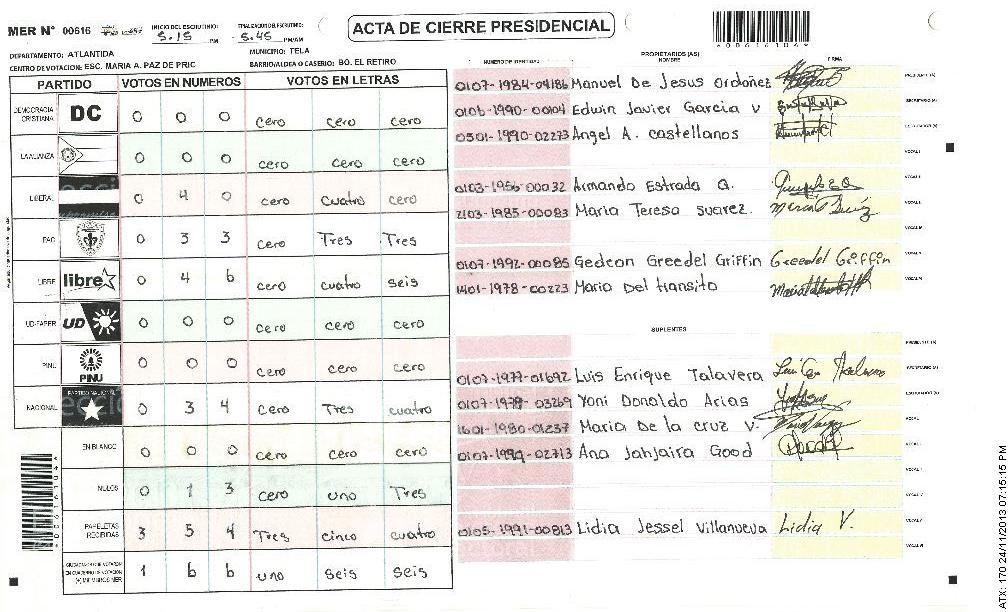 MER Nº 00616
INICIO DEL ESCRUTINIO: 5.15 PM
5.45 PM/AM
ACTA DE CIERRE PRESIDENCIAL
*00616106*
DEPARTAMENTO: ATLANTIDA
MUNICIPIO: TELA
CENTRO DE VOTACION: ESC. MARIA A. PAZ DE PRIC
BARRIO/ALDEA O CASERIO: BO. EL RETIRO
PARTIDO VOTOS EN NUMEROS VOTOS EN LETRAS
DEMOCRACIA CRISTIANA DC 0 0 0 cero cero cero
LA ALIANZA 0 0 0 cero cero cero
LIBERAL 0 4 0 cero cuatro cero
PAC 0 3 3 cero Tres Tres
LIBRE libre 0 4 6 cero cuatro seis
UD-FAPER UD 0 0 0 cero cero cero
PINU PINU 0 0 0 cero cero cero
NACIONAL PARTIDO NACIONAL 0 3 4 cero Tres cuatro
EN BLANCO 0 0 0 cero cero cero
NULOS 0 1 3 cero uno Tres
PAPELETAS RECIBIDAS 3 5 4 Tres cinco cuatro
CIUDADANOS QUE VOTARON EN CUADERNO DE VOTACION (+) MIEMBROS MER 1 6 6 uno seis seis
PROPIETARIOS (AS)
NUMERO DE IDENTIDAD NOMBRE FIRMA
0107-1984-04186 Manuel De Jesus Ordoñez
0106-1990-00104 Edwin Javier Garcia v
0501-1990-02273 Angel A. castellanos
0103-1956-00032 Armando Estrada Q.
2103-1985-00083 Maria Teresa suarez.
0107-1992-00085 Gedeon Greedel Griffin Greedel Griffin
1401-1978-00223 Maria Del transito
SUPLENTES
0107-1977-01692 Luis Enrique Talavera
0107-1979-03269 Yoni Donaldo Arias
1601-1980-01237 Maria De la cruz V.
0107-1992-02713 Ana Jahjaira Good
0105-1991-00813 Lidia Jessel Villanueva Lidia V.
ATX: 170 24/11/2013 07:15:15 PM